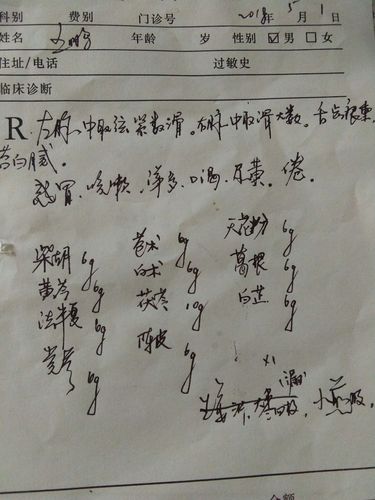 科别 费别 门诊号 2018年 5月 1日
姓名 年龄 岁 性别 ☑男 □女
住址/电话 过敏史
临床诊断
R 左脉中取弦紧数滑。右脉中取滑大数。舌尖
苔白腻。
感冒、咳嗽、口渴、尿黄。倦。
柴胡 6g 苍术 6g 天花粉 6g
黄芩 6g 白术 6g 葛根 6g
法半夏 6g 茯苓 10g 白芷 6g
党参 6g 陈皮 6g
x1